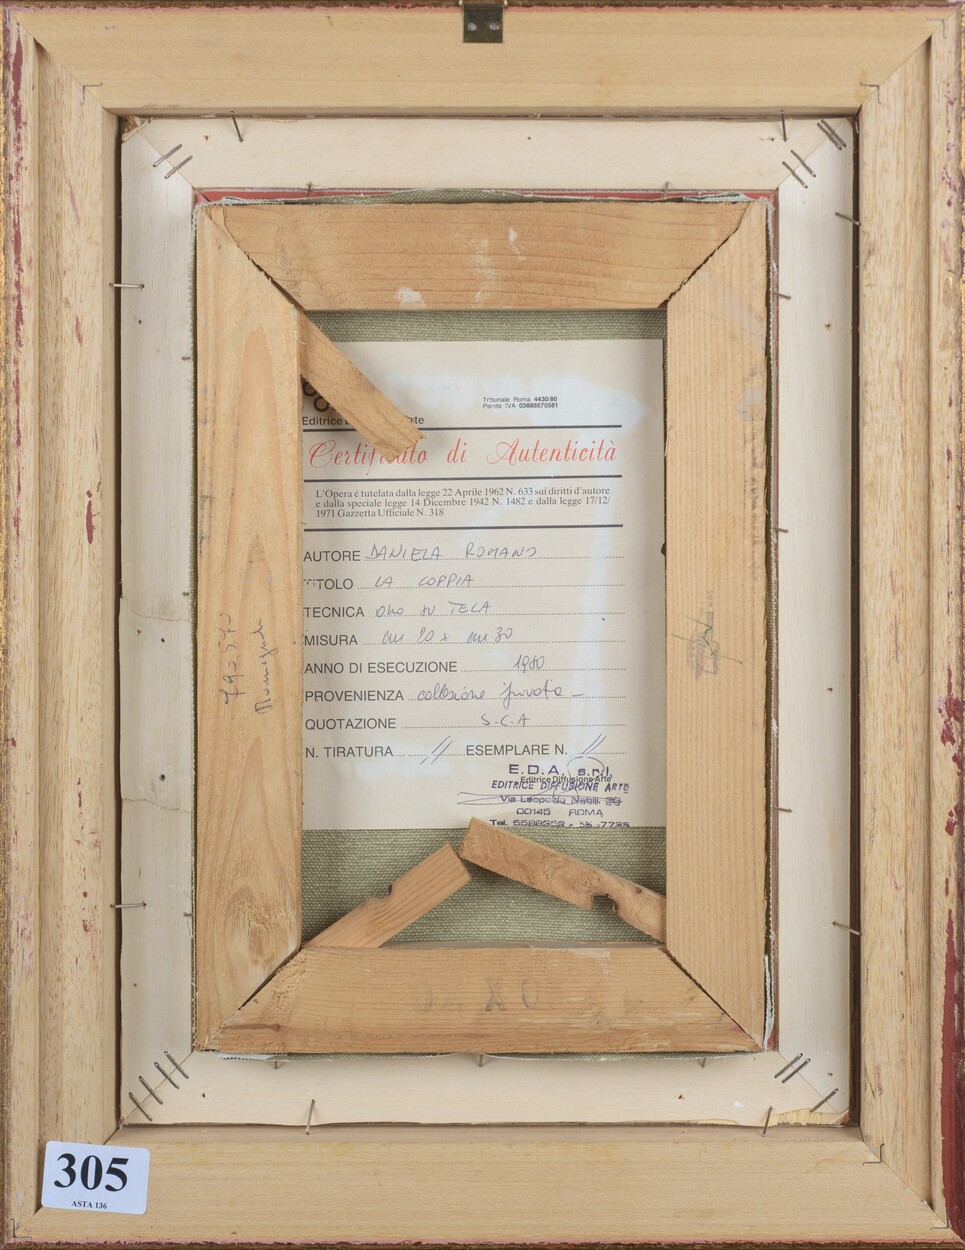 Tribunale Roma 4430/80
Partita IVA 03888570581
Editrice
Certificato di Autenticità
L'Opera é tutelata dalla legge 22 Aprile 1962 N. 633 sui diritti d'autore
e dalla speciale legge 14 Dicembre 1942 N. 1482 e dalla legge 17/12/
1971 Gazzetta Ufficiale N. 318
AUTORE DANIELA ROMANO
TITOLO LA COPPIA
TECNICA olio su TELA
MISURA cm 20 x cm 30
ANNO DI ESECUZIONE 1980
PROVENIENZA collezione privata -
QUOTAZIONE S.C.A
N. TIRATURA // ESEMPLARE N. //
E.D.A. s.r.l.
Editrice Diffusione Arte
EDITRICE DIFFUSIONE ARTE
Via Leopoldo
00145 ROMA
Tel.
305
ASTA 136